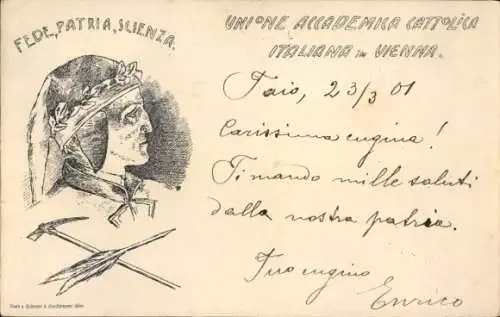 FEDE, PATRIA, SCIENZA.
UNIONE ACCADEMICA CATTOLICA
ITALIANA in VIENNA.
Taio, 23/3 01
Carissima cugina!
Ti mando mille saluti
dalla nostra patria.
Tuo cugino
Enrico